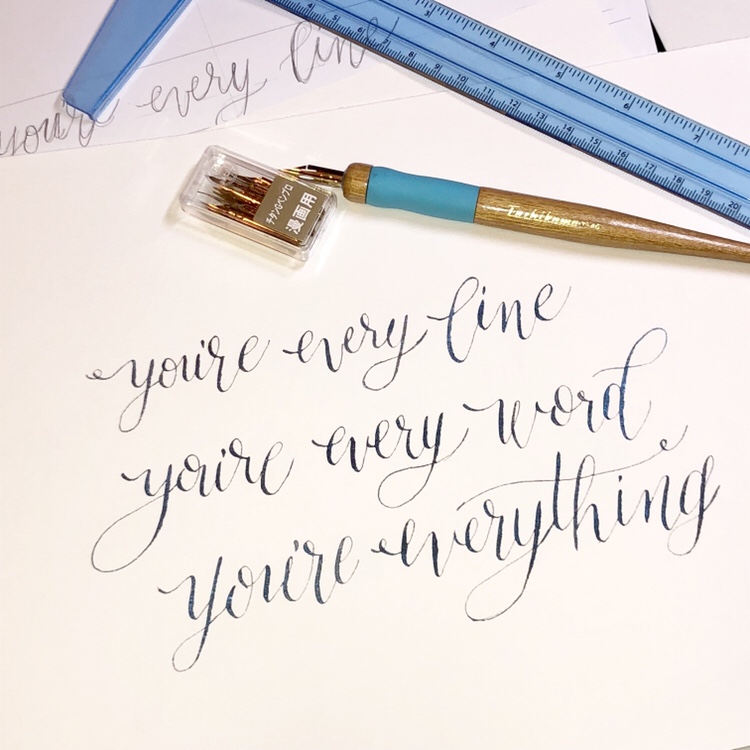 you're every line
チタンGペンプロ
漫画用
Tachikawa
you're every line
you're every word
you're everything
3 4 5 6 7
4 5 6 7 8 9 10 11 12 13 14 15 16 17 18 19 20